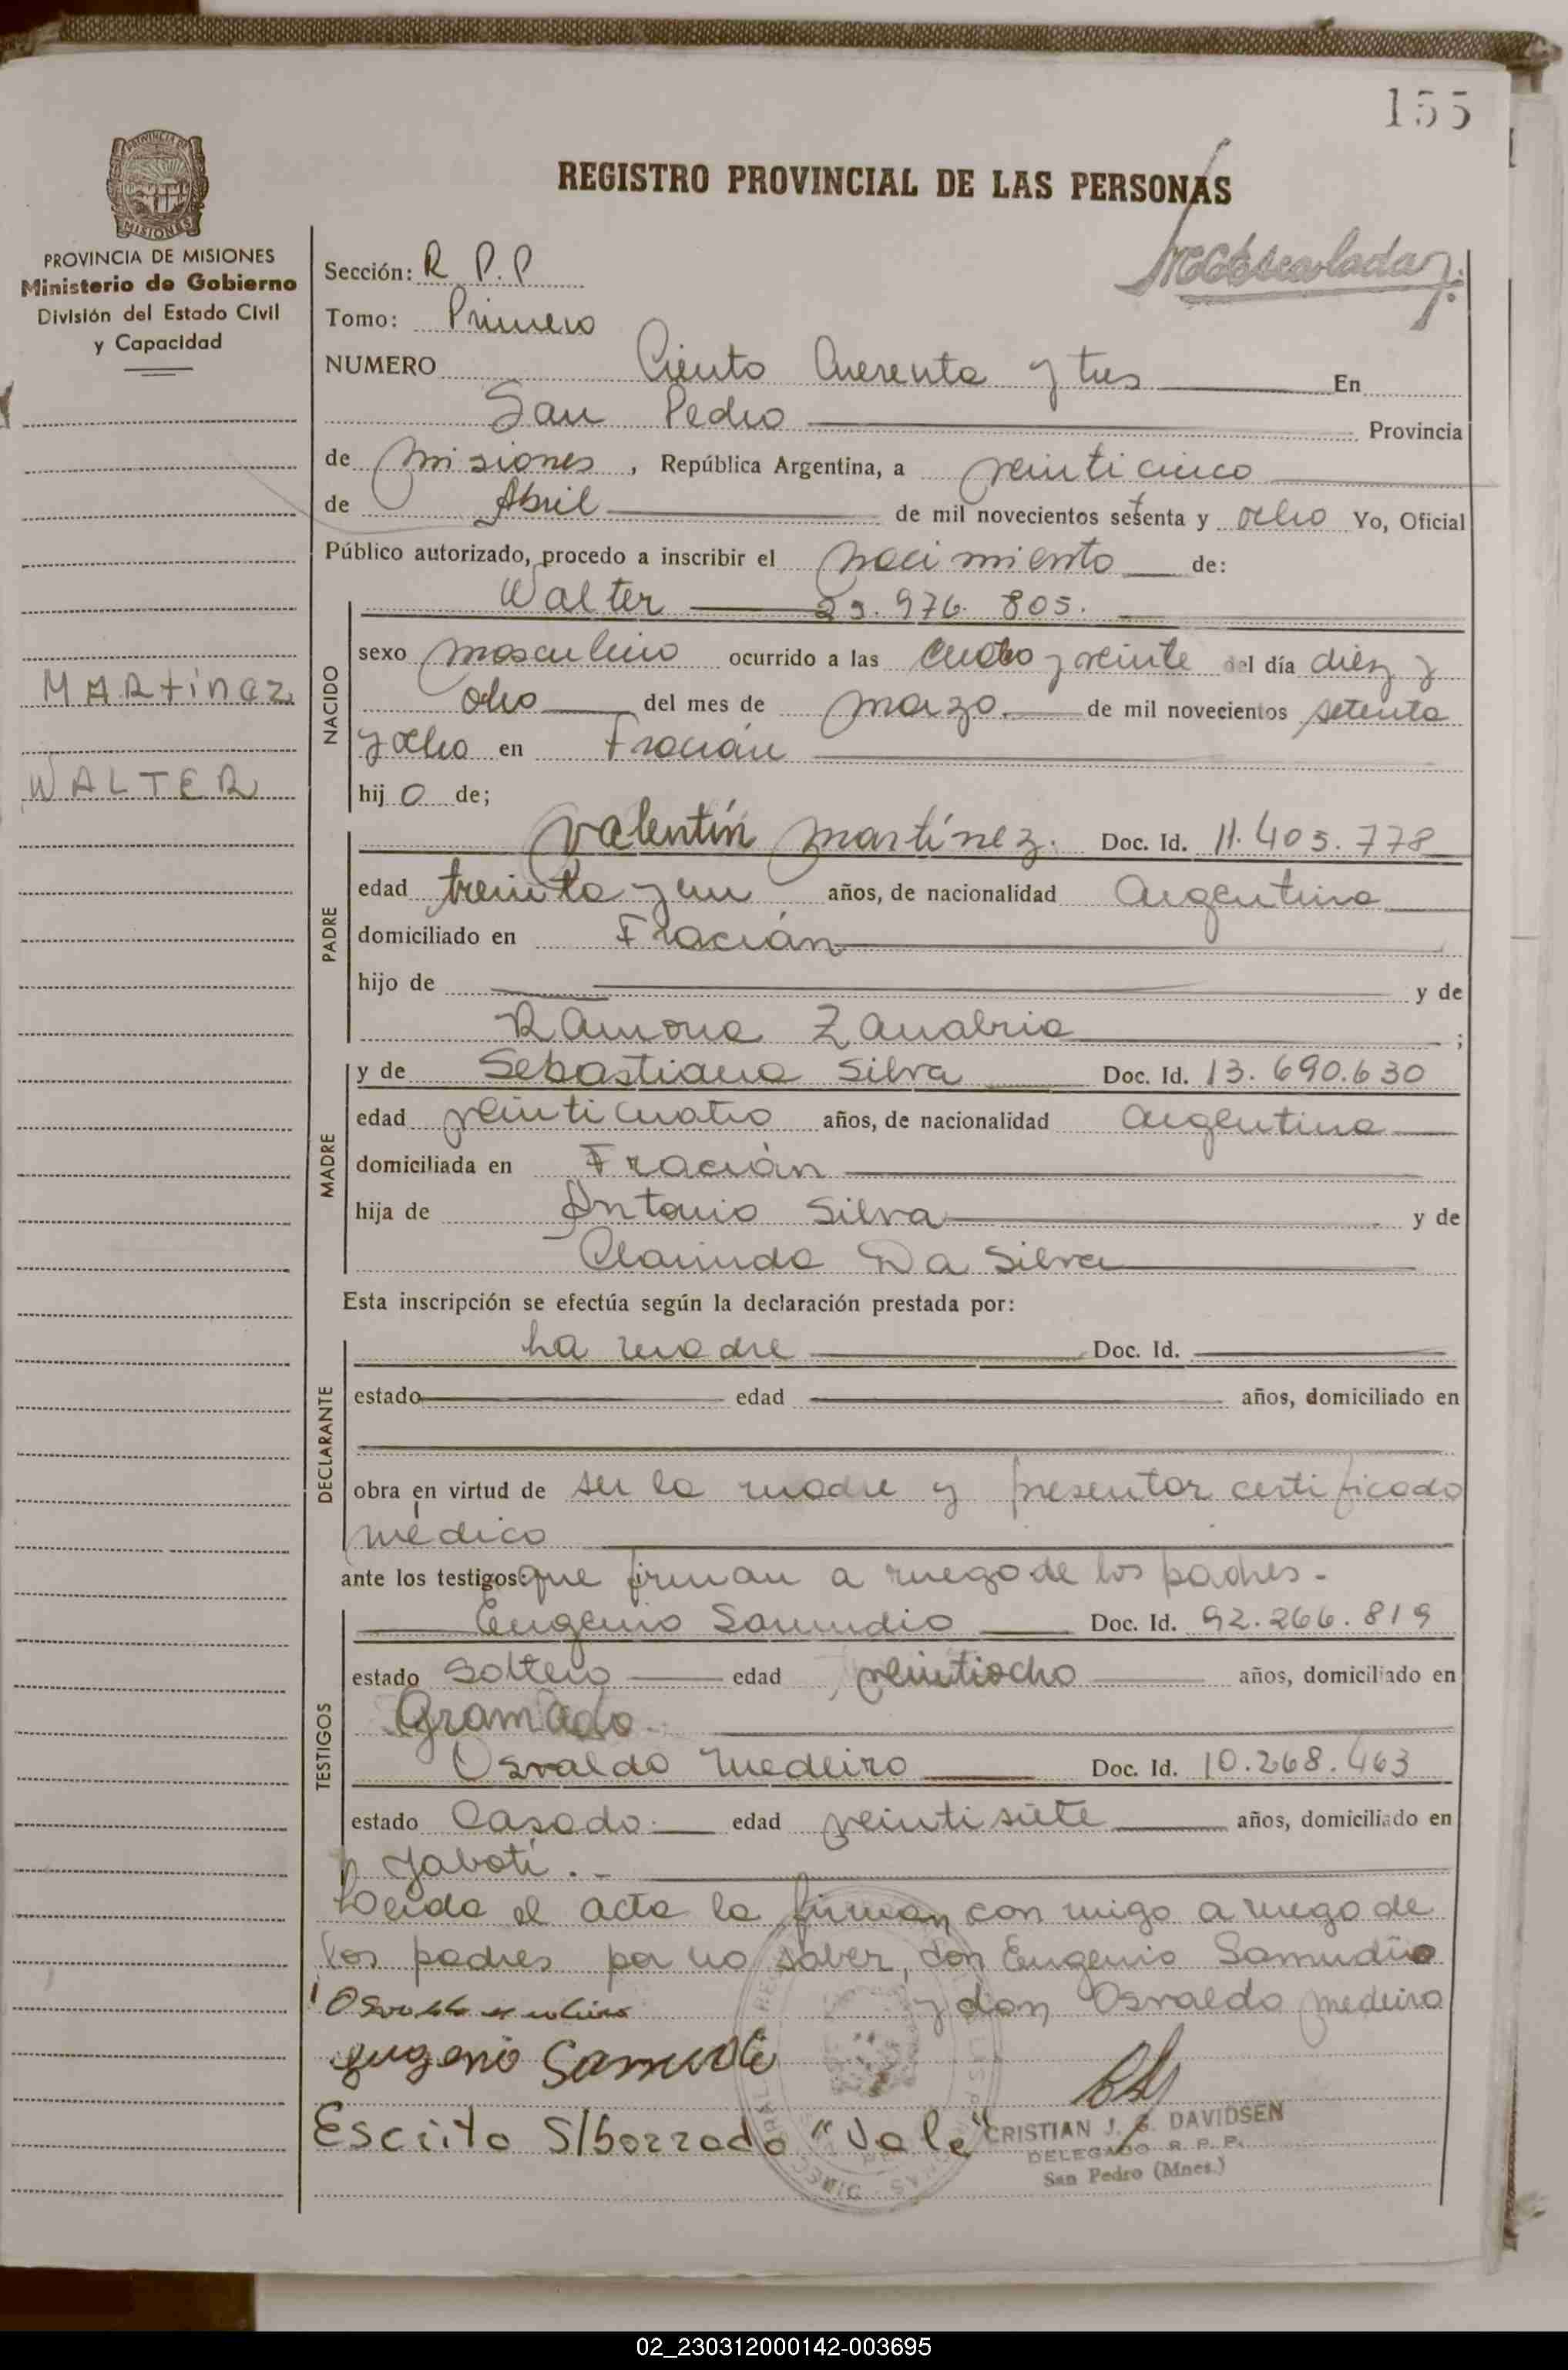 155
REGISTRO PROVINCIAL DE LAS PERSONAS
PROVINCIA DE MISIONES
Ministerio de Gobierno
División del Estado Civil
y Capacidad
MARtinez
WALTER
Sección: R P.P
Tomo: Primero
NUMERO Ciento Cuerenta y tres En
San Pedro Provincia
de misiones, República Argentina, a veinticinco
de Abril de mil novecientos setenta y ocho Yo, Oficial
Público autorizado, procedo a inscribir el nacimiento de:
Walter 25.976.805.
NACIDO
sexo masculino ocurrido a las cuatro y veinte del día diez y
ocho del mes de marzo. de mil novecientos setenta
y ocho en Fracrán
hijo de;
PADRE
Valentín Martínez. Doc. Id. 11.405.778
edad treinta y un años, de nacionalidad Argentina
domiciliado en Fracrán
hijo de y de
Ramona Zanabria ;
MADRE
y de Sebastiana Silva Doc. Id. 13.690.630
edad veinticuatro años, de nacionalidad Argentina
domiciliada en Fracrán
hija de Antonio Silva y de
Clarinda Da Silva
Esta inscripción se efectúa según la declaración prestada por:
DECLARANTE
La madre Doc. Id.
estado edad años, domiciliado en
obra en virtud de ser la madre y presentar certificado
médico
ante los testigos: que firman a ruego de los padres.-
TESTIGOS
Eugenio Samudio Doc. Id. 92.266.819
estado Soltero edad veintiocho años, domiciliado en
Gramado.
Osvaldo Medeiro Doc. Id. 10.268.463
estado Casado. edad veintisiete años, domiciliado en
Yabotí.-
Leida el acta la firman con migo a ruego de
los padres por no saber, don Eugenio Samudio
y don Osvaldo Medeiro
eugenio Samudio
Escrito S/borrado "Vale"
CRISTIAN J. G. DAVIDSEN
DELEGADO R. P. P.
San Pedro (Mnes.)
02_230312000142-003695